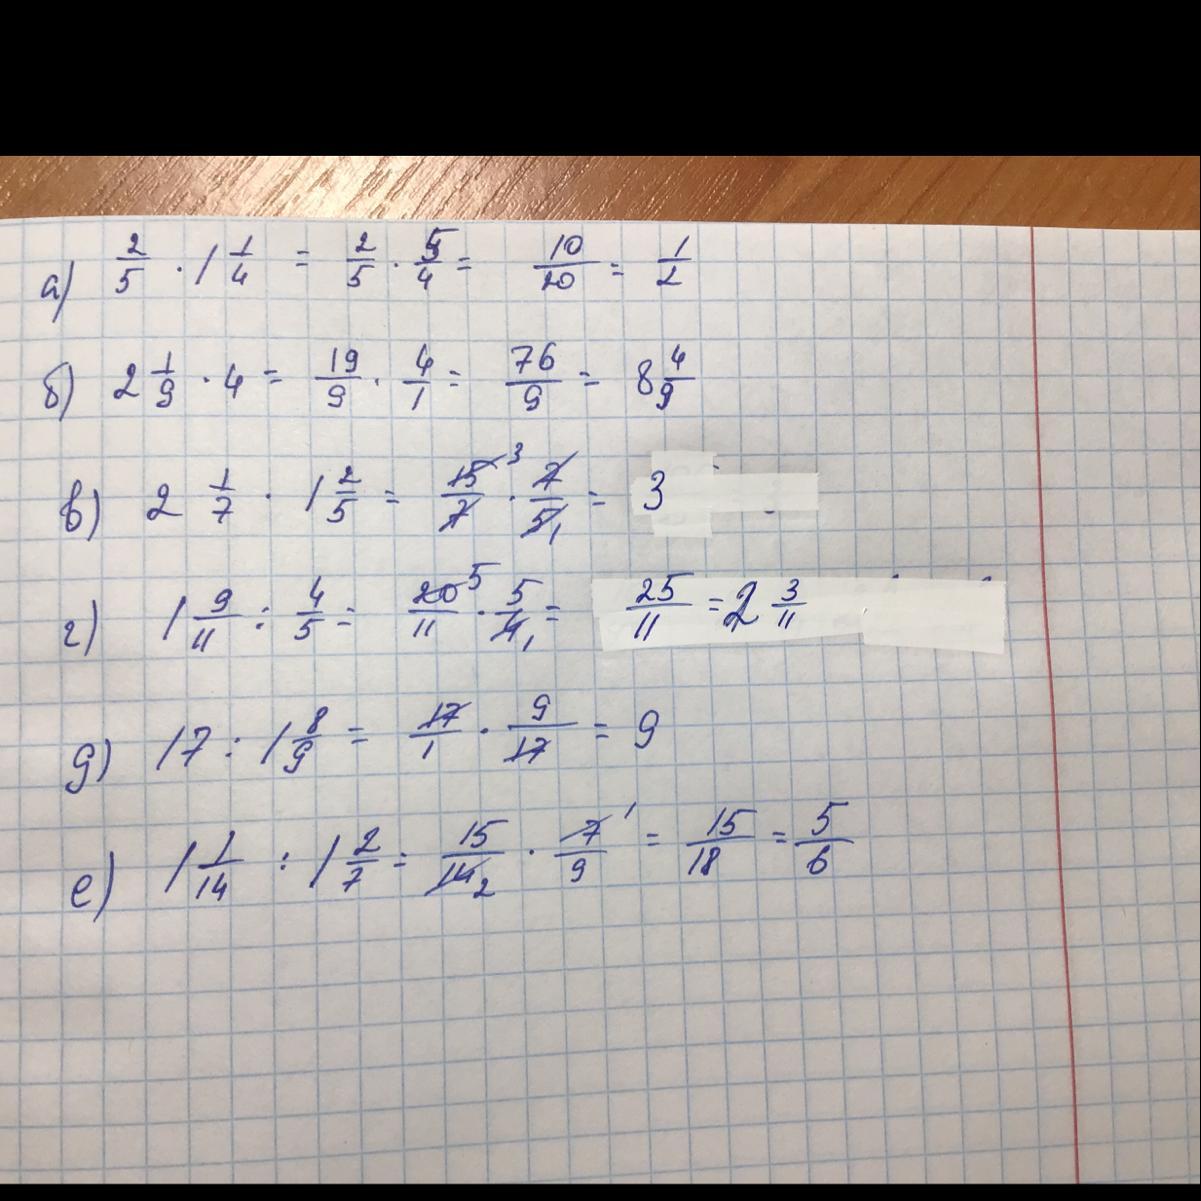 а) 2/5 · 1 1/4 = 2/5 · 5/4 = 10/20 = 1/2
б) 2 1/9 · 4 = 19/9 · 4/1 = 76/9 = 8 4/9
в) 2 1/7 · 1 2/5 = 15 3/7 · 7/5 1 = 3
г) 1 9/11 : 4/5 = 20 5/11 · 5/4 1 = 25/11 = 2 3/11
д) 17 : 1 8/9 = 17/1 · 9/17 = 9
е) 1 1/14 : 1 2/7 = 15/14 2 · 7 1/9 = 15/18 = 5/6